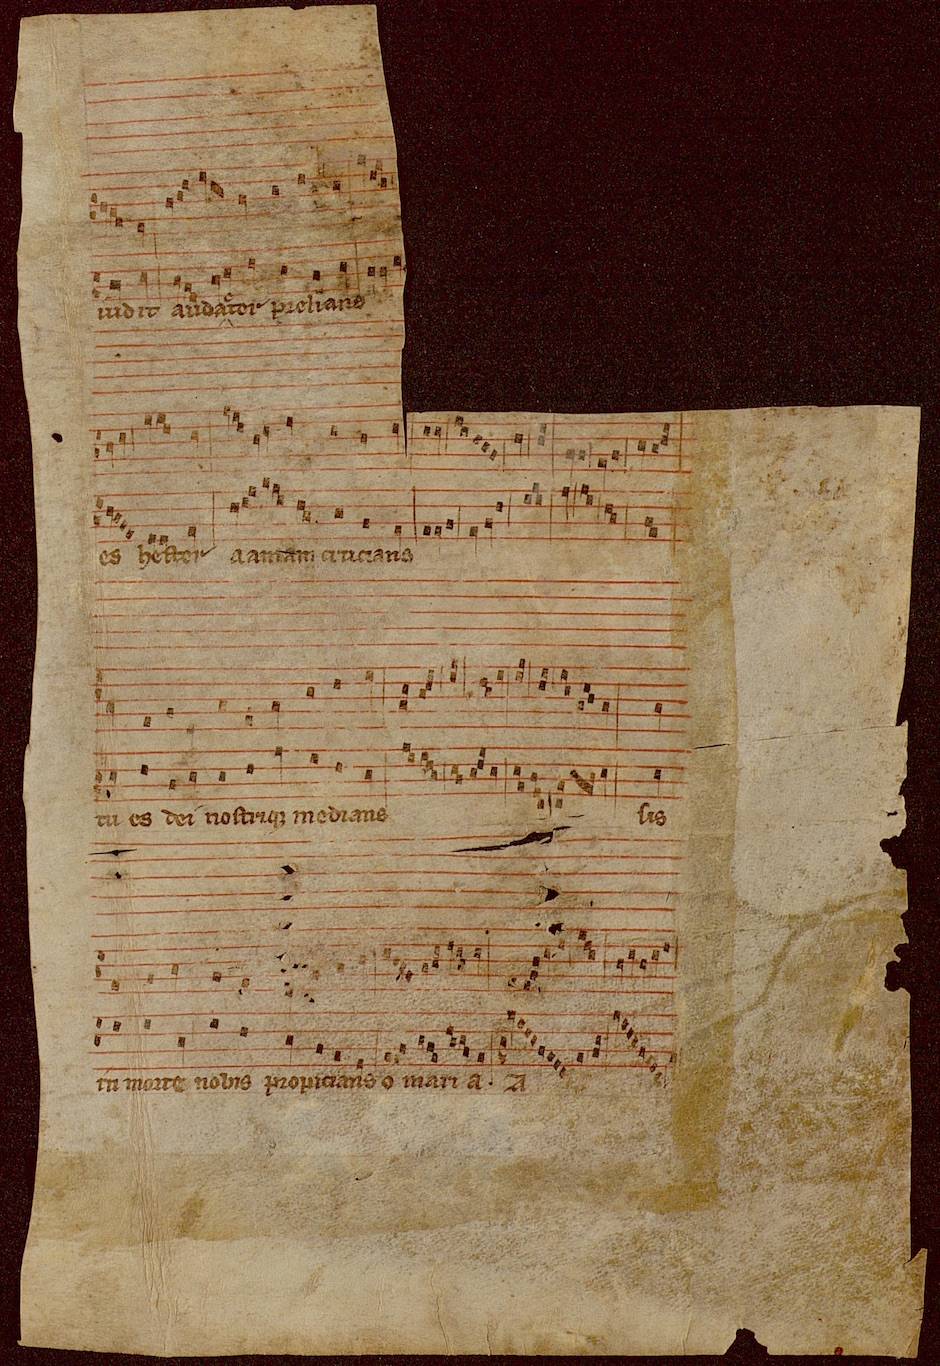 iudit audact͛er prelians
es hester aamam citicians
tu es dei nostriqꝫ medians sis
in morte nobis propicians o mari a. A